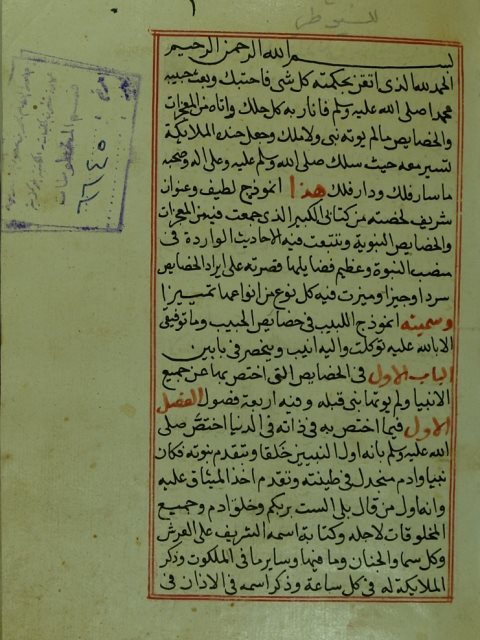 للسيوطي
بسم الله الرحمن الرحيم
الحمد لله الذي اتقن بحكمته كل شي فاحتبك وبعث حبيبه
محمدا صلى الله عليه وسلم فانار به كل حلك واتاه من المعجزات
والخصايص مالم يوته نبي ولا ملك وجعل جنده الملايكة
تسير معه حيث سلك صلى الله وسلم عليه وعلى اله وصحبه
ما سار فلك ودار فلك هذا انموذج لطيف وعنوان
شريف لخصته من كتابي الكبير الذي جمعت فيه من المعجزات
والخصايص النبوية وتتبعت فيه الاحاديث الواردة في
منصب النبوة وعظيم فضايلها قصرته على ايراد الخصايص
سردا وجيزا وميزت فيه كل نوع من انواعها تمييزا
وسميته انموذج اللبيب في خصايص الحبيب وما توفيقي
الا بالله عليه توكلت واليه انيب وينحصر في بابين
الباب الاول في الخصايص التي اختص بها عن جميع
الانبيا ولم يوتها نبي قبله وفيه اربعة فصول الفصل
الاول فيما اختص به في ذاته في الدنيا اختص صلى
الله عليه وسلم بانه اول النبيين خلقا وتقدم نبوته فكان
نبيا وادم منجدل في طينته وتقدم اخذ الميثاق عليه
وانه اول من قال بلى الست بربكم وخلق ادم وجميع
المخلوقات لاجله وكتابة اسمه الشريف على العرش
وكل سما والجنان وما فيها وساير ما في الملكوت وذكر
الملايكة له في كل ساعة وذكر اسمه في الاذان في
قسم المخطوطات
٦٦٤٥